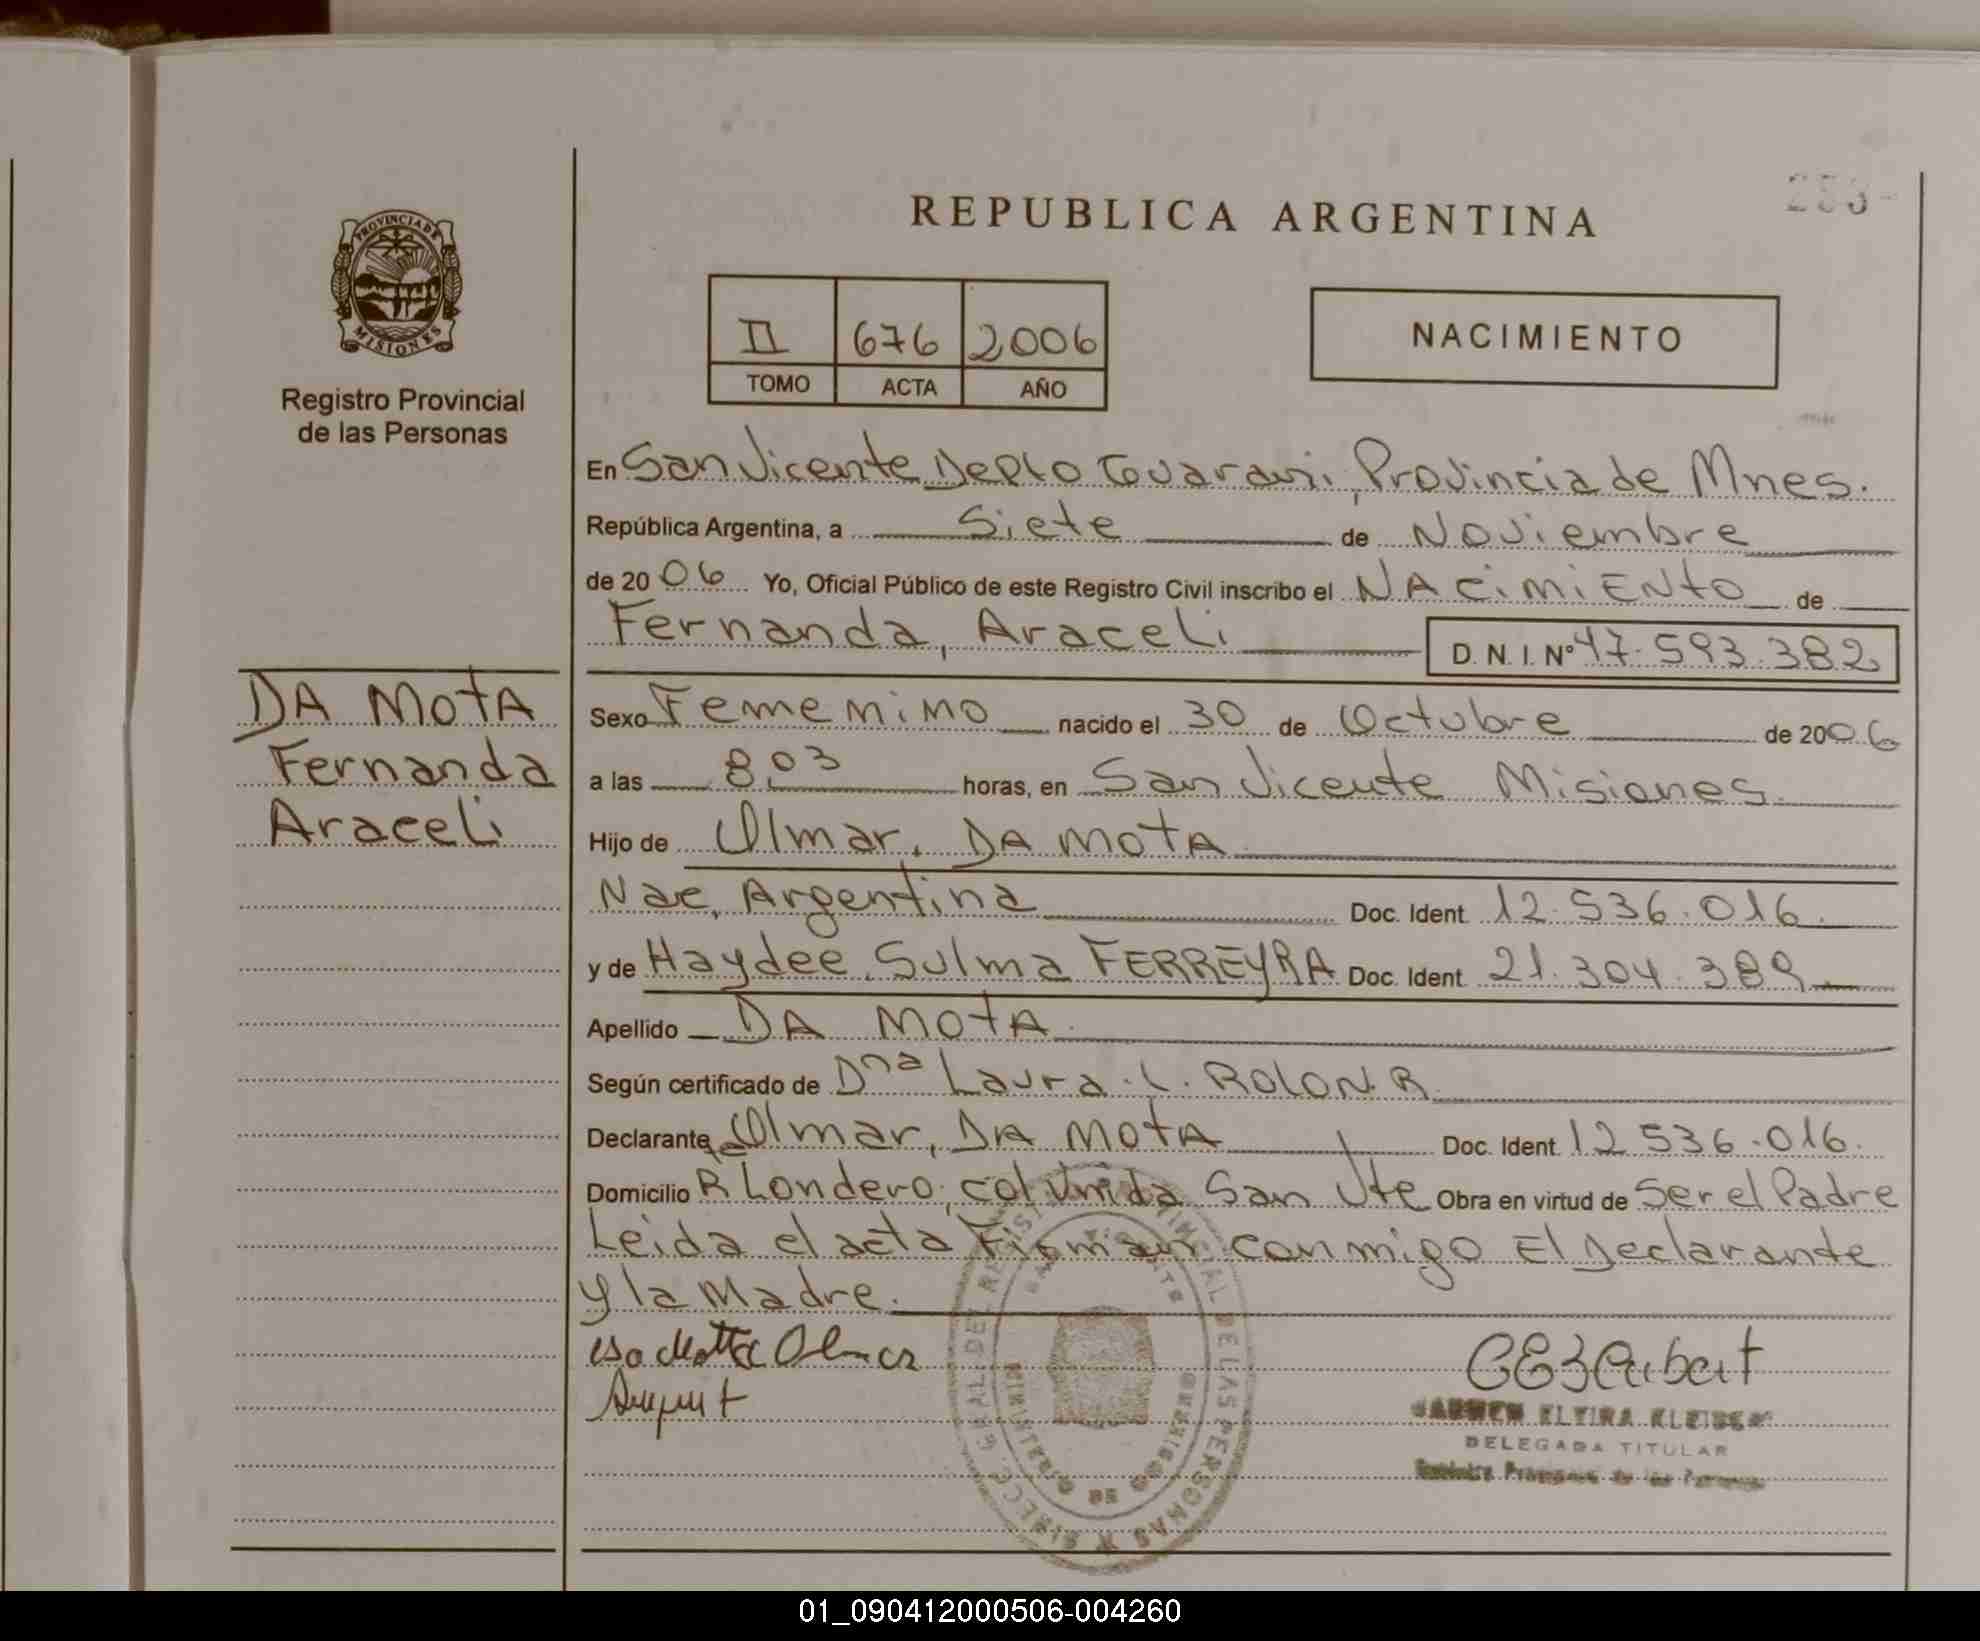 253-
REPUBLICA ARGENTINA
PROVINCIA DE
MISIONES
Registro Provincial
de las Personas
II 676 2006
TOMO ACTA AÑO
NACIMIENTO
En San Vicente Depto Guarani, Provincia de Mnes.
República Argentina, a Siete de Noviembre
de 2006 Yo, Oficial Público de este Registro Civil inscribo el NAcimiENto de
Fernanda, Araceli D.N.I. Nº 47.593.382
DA MotA
Fernanda
Araceli
Sexo Femenino nacido el 30 de Octubre de 2006
a las 8,03 horas, en San Vicente Misiones.
Hijo de Olmar, DA MotA
Nac, Argentina Doc. Ident. 12.536.016.
y de Haydee, Sulma FERREYRA Doc. Ident. 21.304.389
Apellido DA MotA.
Según certificado de Dña Laura. L. ROLON.R.
Declarante Olmar, DA MotA Doc. Ident. 12.536.016.
Domicilio R Londero, col Unida San Vte Obra en virtud de Ser el Padre
Leida el acta Firman conmigo El Declarante
y la Madre.
ELVIRA
DELEGADA TITULAR
DE LAS PERSONAS
01_090412000506-004260